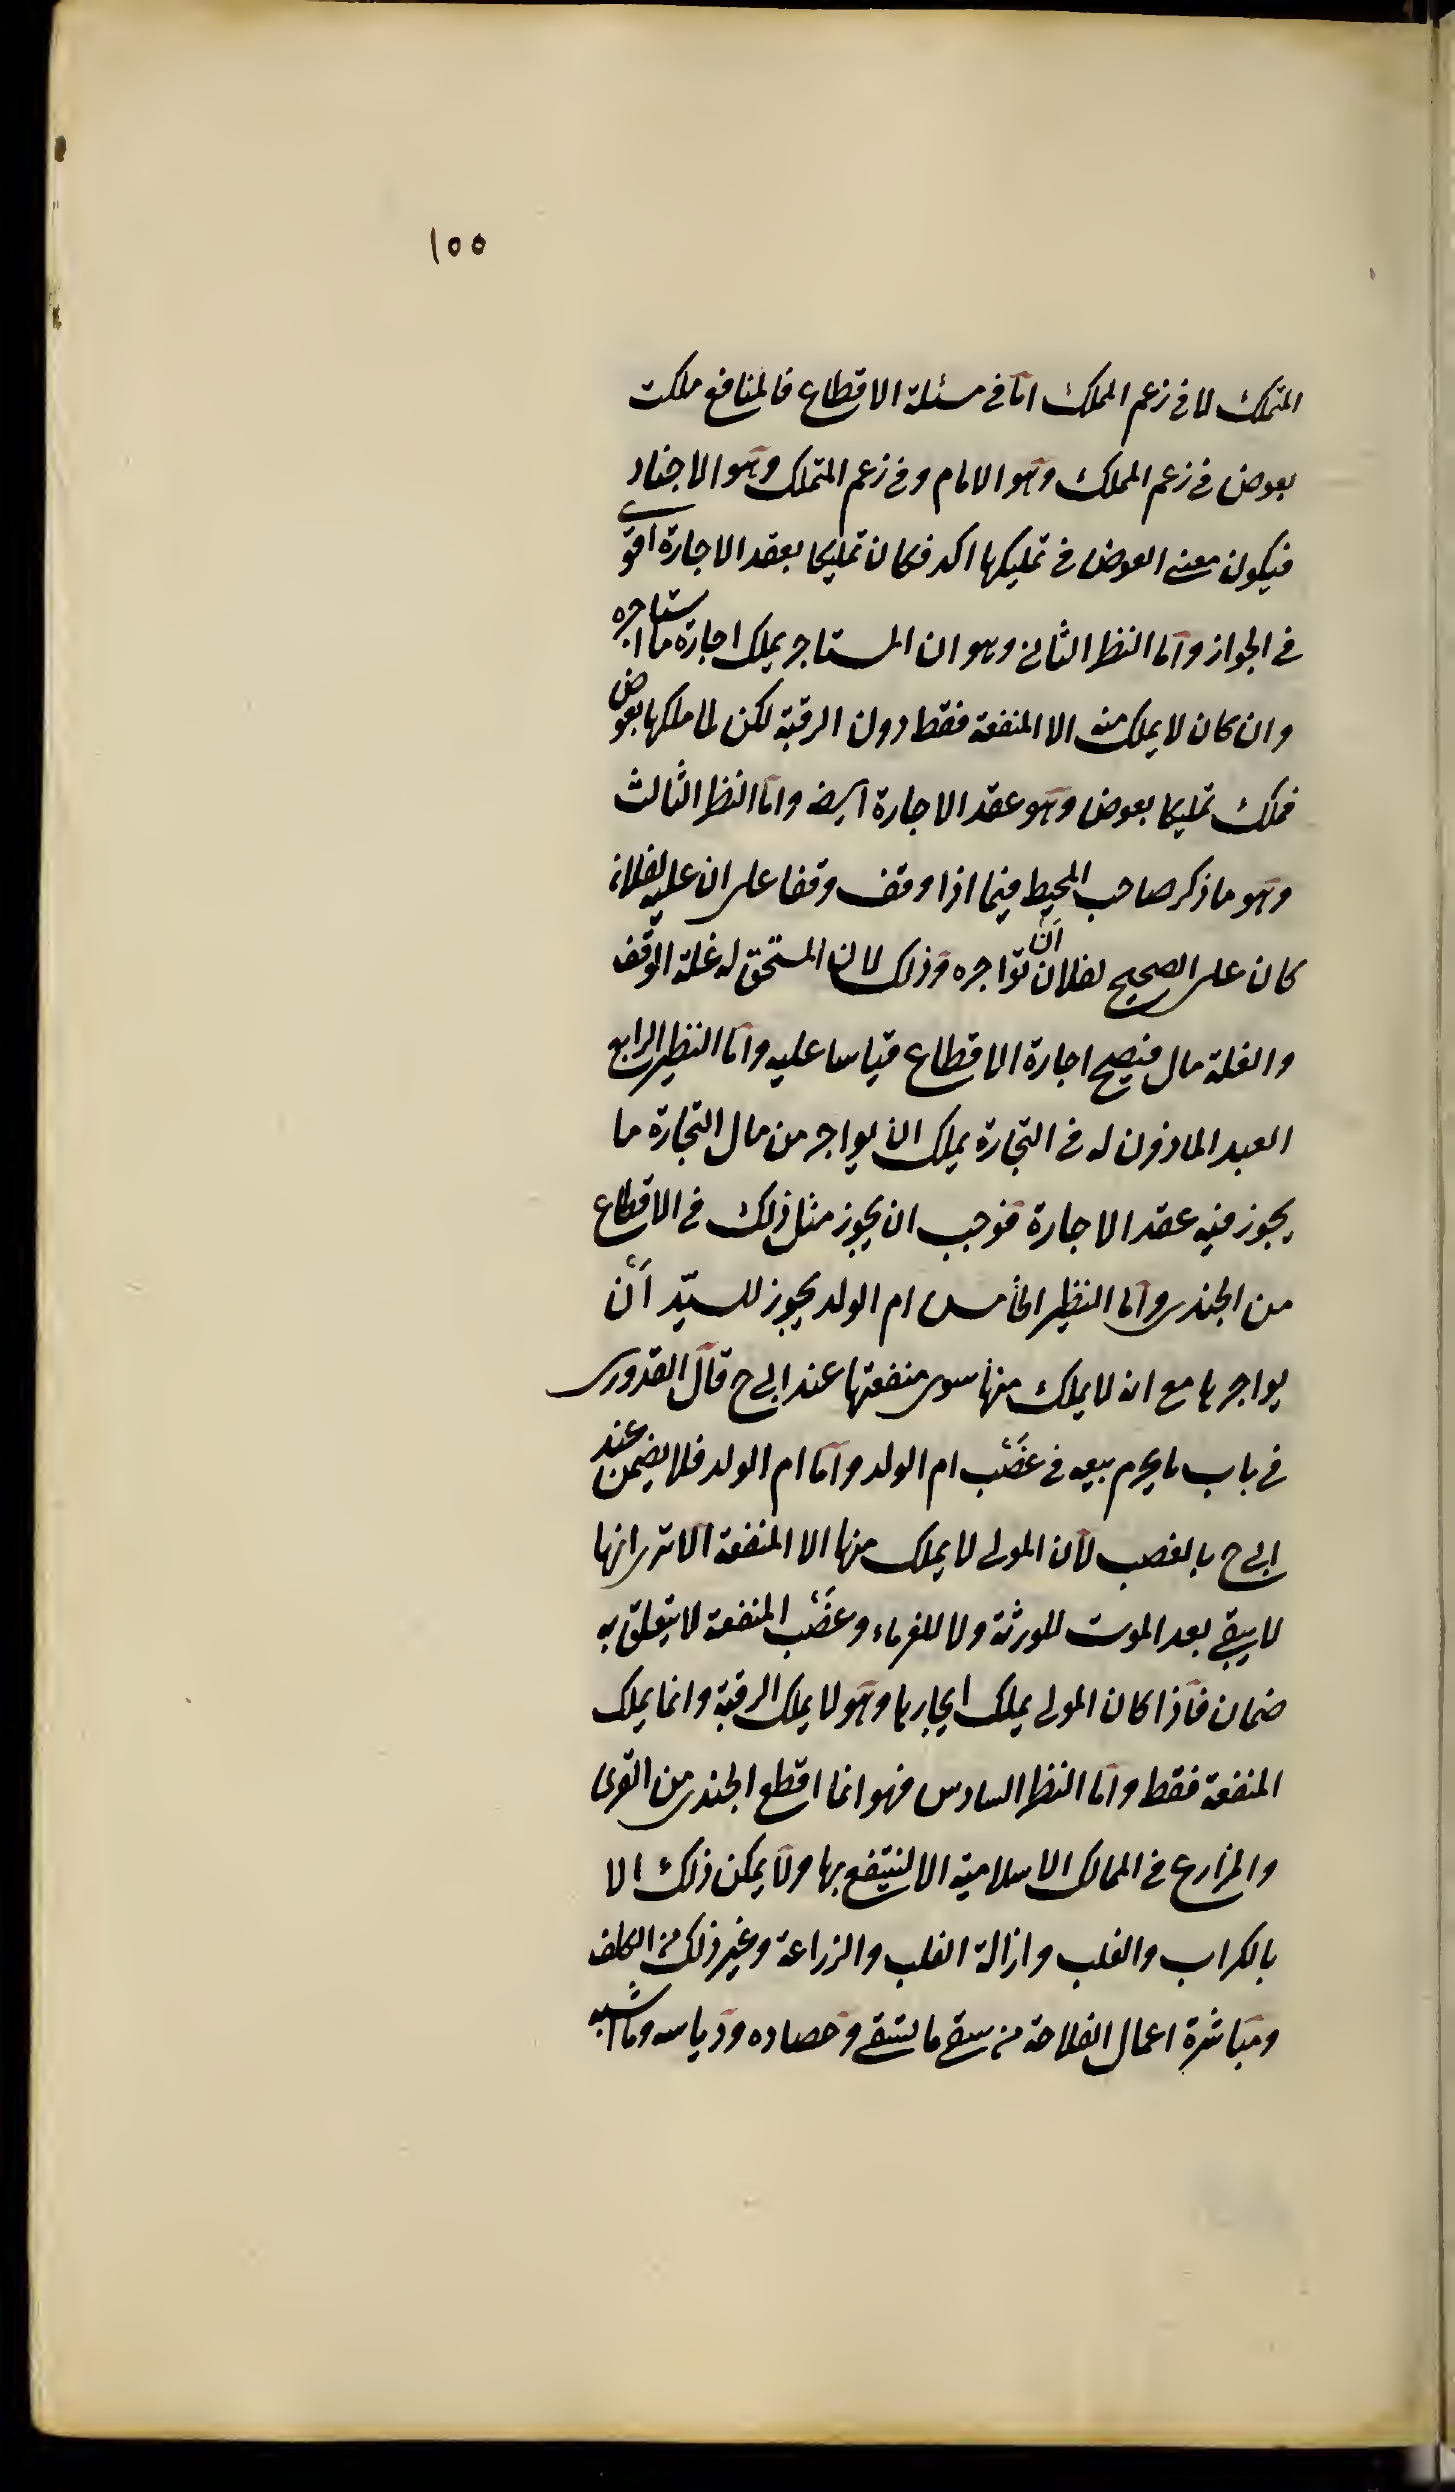 ١٥٥
المتملك لا في زعم المملك اما في مسئلة الاقطاع فالمنافع ملكت
بعوض في زعم المملك وهو الامام وفي زعم المتملك وهو الاجناد
فيكون معنى العوض في تمليكها اكد فكان تمليكا بعقد الاجارة اقوى
في الجواز واما النظر الثاني وهو ان المستاجر يملك اجارة ما استاجره
وان كان لا يملك منه الا المنفعة فقط دون الرقبة لكن لما ملكها بعوض
فملك تمليكا بعوض وهو عقد الاجارة ايضه واما النظر الثالث
وهو ما ذكر صاحب المحيط فيما اذا وقف وقفا على ان عليه لفلان
كان على الصحيح لفلان ان تواجره وذلك لان المستحق له غلة الوقف
والغلة مال فيصح اجارة الاقطاع قياسا عليه واما النظير الرابع
العبد الماذون له في التجارة يملك ان يواجر من مال التجارة ما
يجوز فيه عقد الاجارة فوجب ان يجوز مثل ذلك في الاقطاع
من الجندى واما النظير الخامس ام الولد يجوز للسيّد أن
يواجرها مع انه لا يملك منها سوى منفعتها عند ابي ح قال القدورى
في باب ما يحرم بيعه في غصب ام الولد واما ام الولد فلا يضمن عند
ابي ح بالغصب لان المولى لا يملك منها الا المنفعة الا ترى انها
لا يبقى بعد الموت للورثة ولا للغرماء وغصب المنفعة لا يتعلق به
ضمان فاذا كان المولى يملك ايجارها وهو لا يملك الرقبة وانما يملك
المنفعة فقط واما النظر السادس فهو انما اقطع الجندى من القرى
والمزارع في الممالك الاسلامية الا لينتفع بها ولا يمكن ذلك الا
بالكراب والقلب وازالة القلب والزراعة وغير ذلك من الكلف
ومباشرة اعمال الفلاحة من سقى ما يسقى وحصاده ودياسه وما اشبه